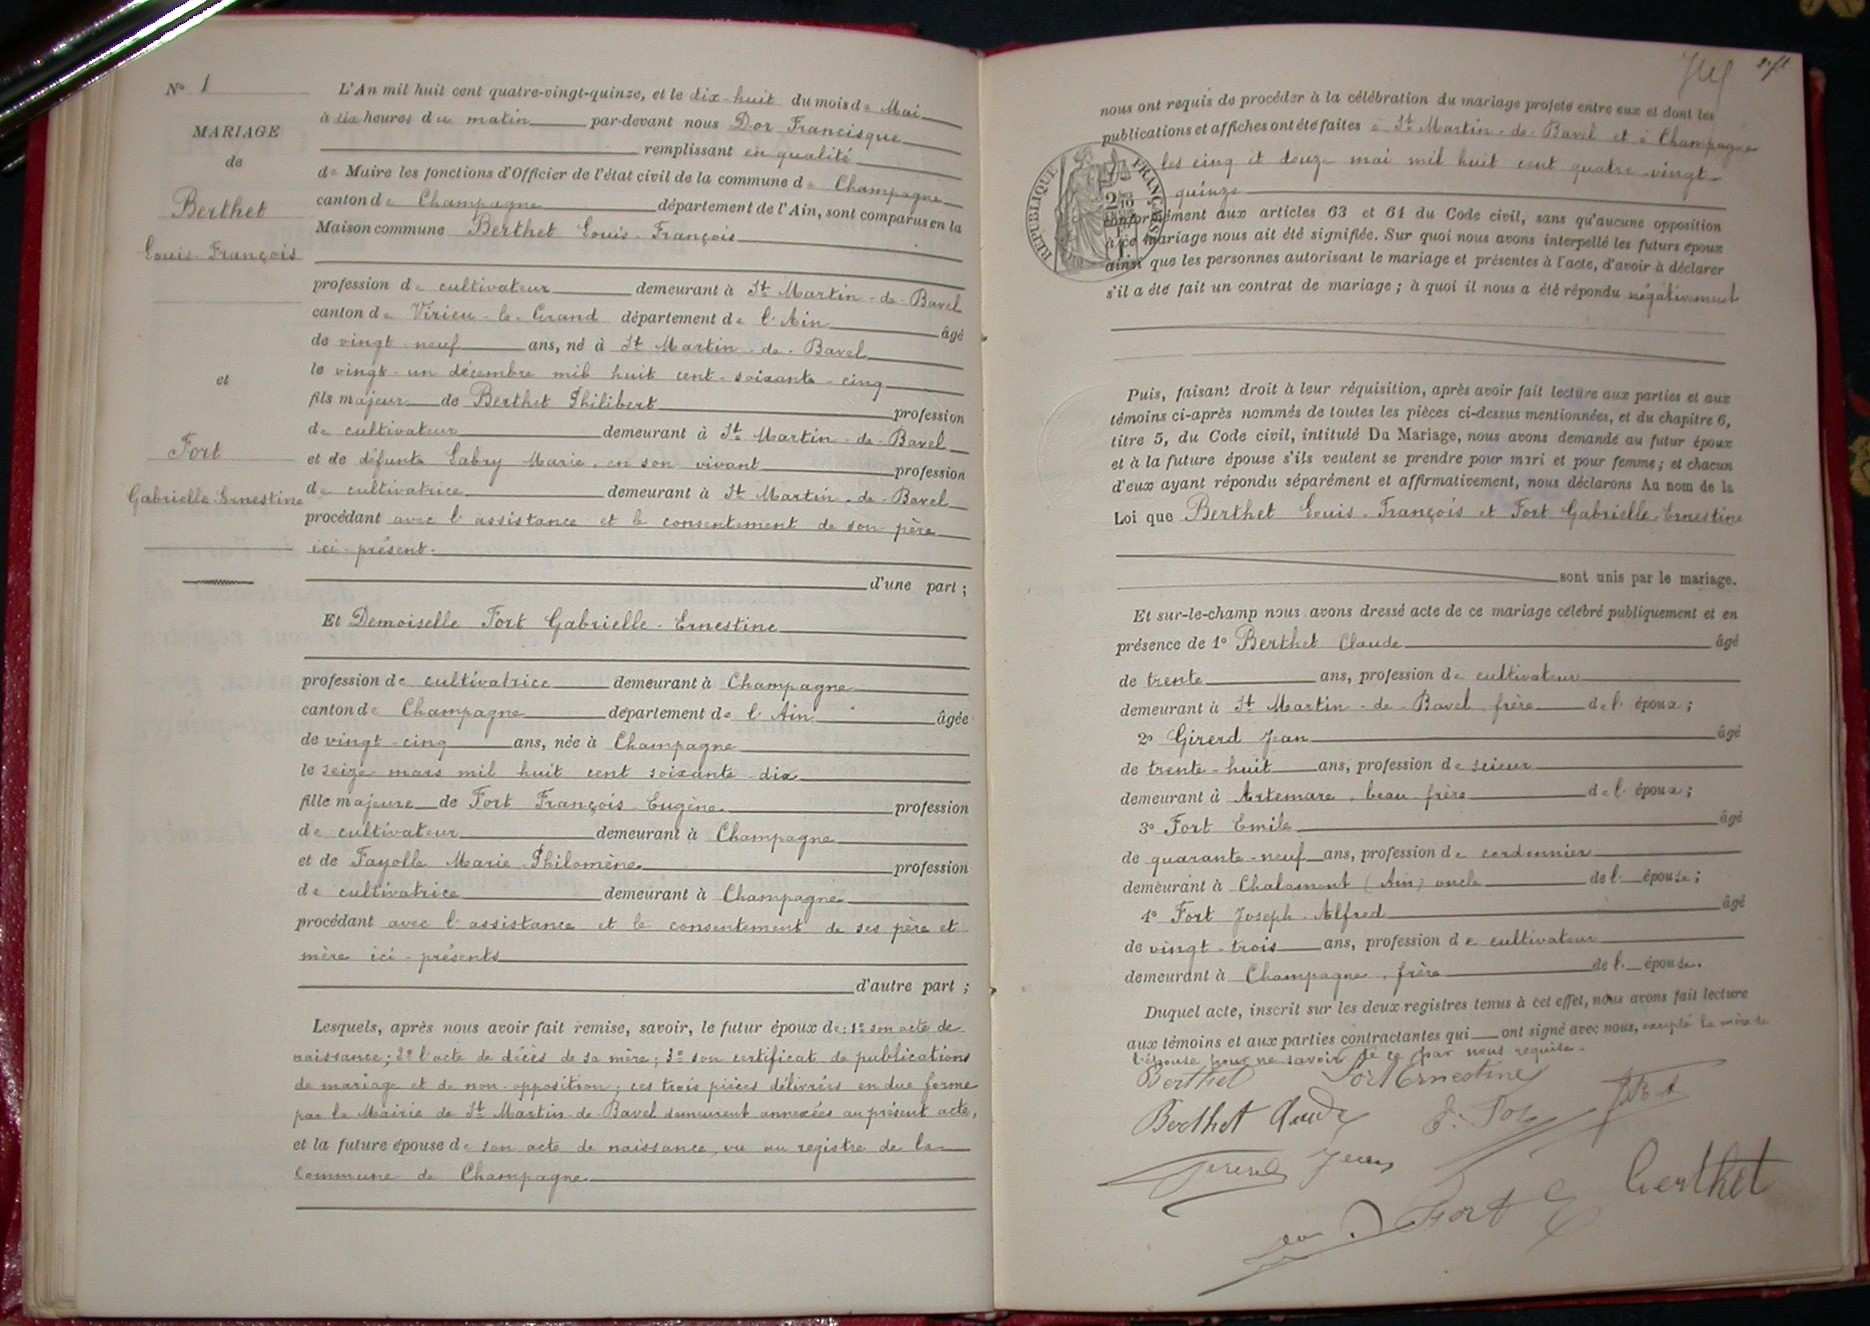 N° 1
MARIAGE
de
Berthet
Louis François
et
Fort
Gabrielle Ernestine
L'An mil huit cent quatre-vingt-quinze, et le dix-huit du mois de Mai
à six heures du matin par-devant nous Dor Francisque
remplissant en qualité
de Maire les fonctions d'Officier de l'état civil de la commune de Champagne
canton de Champagne département de l'Ain, sont comparus en la
Maison commune Berthet Louis-François
profession de cultivateur demeurant à St Martin-de-Bavel
canton de Virieu-le-Grand département de l'Ain âgé
de vingt-neuf ans, né à St Martin-de-Bavel
le vingt-un décembre mil huit cent-soixante-cinq
fils majeur de Berthet Philibert profession
de cultivateur demeurant à St Martin-de-Bavel
et de défunte Labry Marie en son vivant profession
de cultivatrice demeurant à St Martin-de-Bavel
procédant avec l'assistance et le consentement de son père
ici-présent.
d'une part ;
Et Demoiselle Fort Gabrielle-Ernestine
profession de cultivatrice demeurant à Champagne
canton de Champagne département de l'Ain âgée
de vingt-cinq ans, née à Champagne
le seize mars mil huit cent soixante-dix
fille majeure de Fort François-Eugène profession
de cultivateur demeurant à Champagne
et de Fayolle Marie-Philomène profession
de cultivatrice demeurant à Champagne
procédant avec l'assistance et le consentement de ses père et
mère ici-présents
d'autre part ;
Lesquels, après nous avoir fait remise, savoir, le futur époux de : 1° son acte de
naissance ; 2° l'acte de décès de sa mère ; 3° son certificat de publications
de mariage et de non-opposition ; ces trois pièces délivrées en due forme
par la Mairie de St Martin-de-Bavel demeurent annexées au présent acte,
et la future épouse de son acte de naissance, vu au registre de la
Commune de Champagne
nous ont requis de procéder à la célébration du mariage projeté entre eux et dont les
publications et affiches ont été faites à St Martin-de-Bavel et à Champagne
les cinq et douze mai mil huit cent quatre-vingt-
quinze
RÉPUBLIQUE FRANÇAISE
conformément aux articles 63 et 64 du Code civil, sans qu'aucune opposition
à ce mariage nous ait été signifiée. Sur quoi nous avons interpellé les futurs époux
ainsi que les personnes autorisant le mariage et présentes à l'acte, d'avoir à déclarer
s'il a été fait un contrat de mariage ; à quoi il nous a été répondu négativement
Puis, faisant droit à leur réquisition, après avoir fait lecture aux parties et aux
témoins ci-après nommés de toutes les pièces ci-dessus mentionnées, et du chapitre 6,
titre 5, du Code civil, intitulé Du Mariage, nous avons demandé au futur époux
et à la future épouse s'ils veulent se prendre pour mari et pour femme ; et chacun
d'eux ayant répondu séparément et affirmativement, nous déclarons Au nom de la
Loi que Berthet Louis-François et Fort Gabrielle-Ernestine
sont unis par le mariage.
Et sur-le-champ nous avons dressé acte de ce mariage célébré publiquement et en
présence de 1° Berthet Claude âgé
de trente ans, profession de cultivateur
demeurant à St Martin-de-Bavel frère de l'époux ;
2° Girerd Jean âgé
de trente-huit ans, profession de scieur
demeurant à Artemare, beau frère de l'époux ;
3° Fort Emile âgé
de quarante-neuf ans, profession de cordonnier
demeurant à Chalamont (Ain) oncle de l'épouse ;
4° Fort Joseph-Alfred âgé
de vingt-trois ans, profession de cultivateur
demeurant à Champagne, frère de l'épouse.
Duquel acte, inscrit sur les deux registres tenus à cet effet, nous avons fait lecture
aux témoins et aux parties contractantes qui ont signé avec nous, excepté la mère de
l'épouse pour ne savoir de ce par nous requise.
Berthet Fort Ernestine
Berthet Claude
Girerd Jean
Fort Berthet